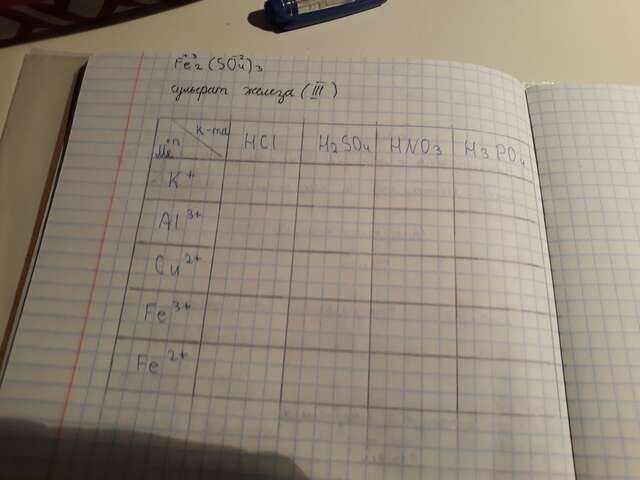 Fe₂⁺³(SO₄)₃⁻²
сульфат железа (III)
Me⁺ⁿ к-та HCl H₂SO₄ HNO₃ H₃PO₄
K⁺
Al³⁺
Cu²⁺
Fe³⁺
Fe²⁺